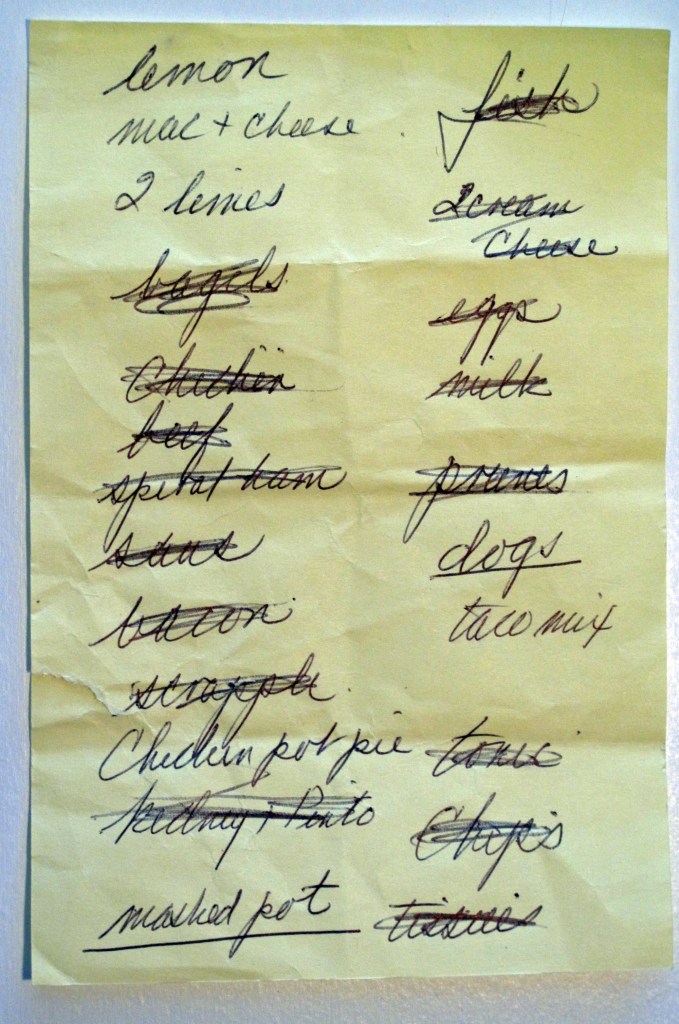 lemon
mac + cheese
2 limes
bagels
Chicken
beef
spiral ham
saus
bacon
scrapple
Chicken pot pie
kidney + Pinto
mashed pot
fish
2 cream
Cheese
eggs
milk
prunes
dogs
taco mix
tonic
Chips
tissues